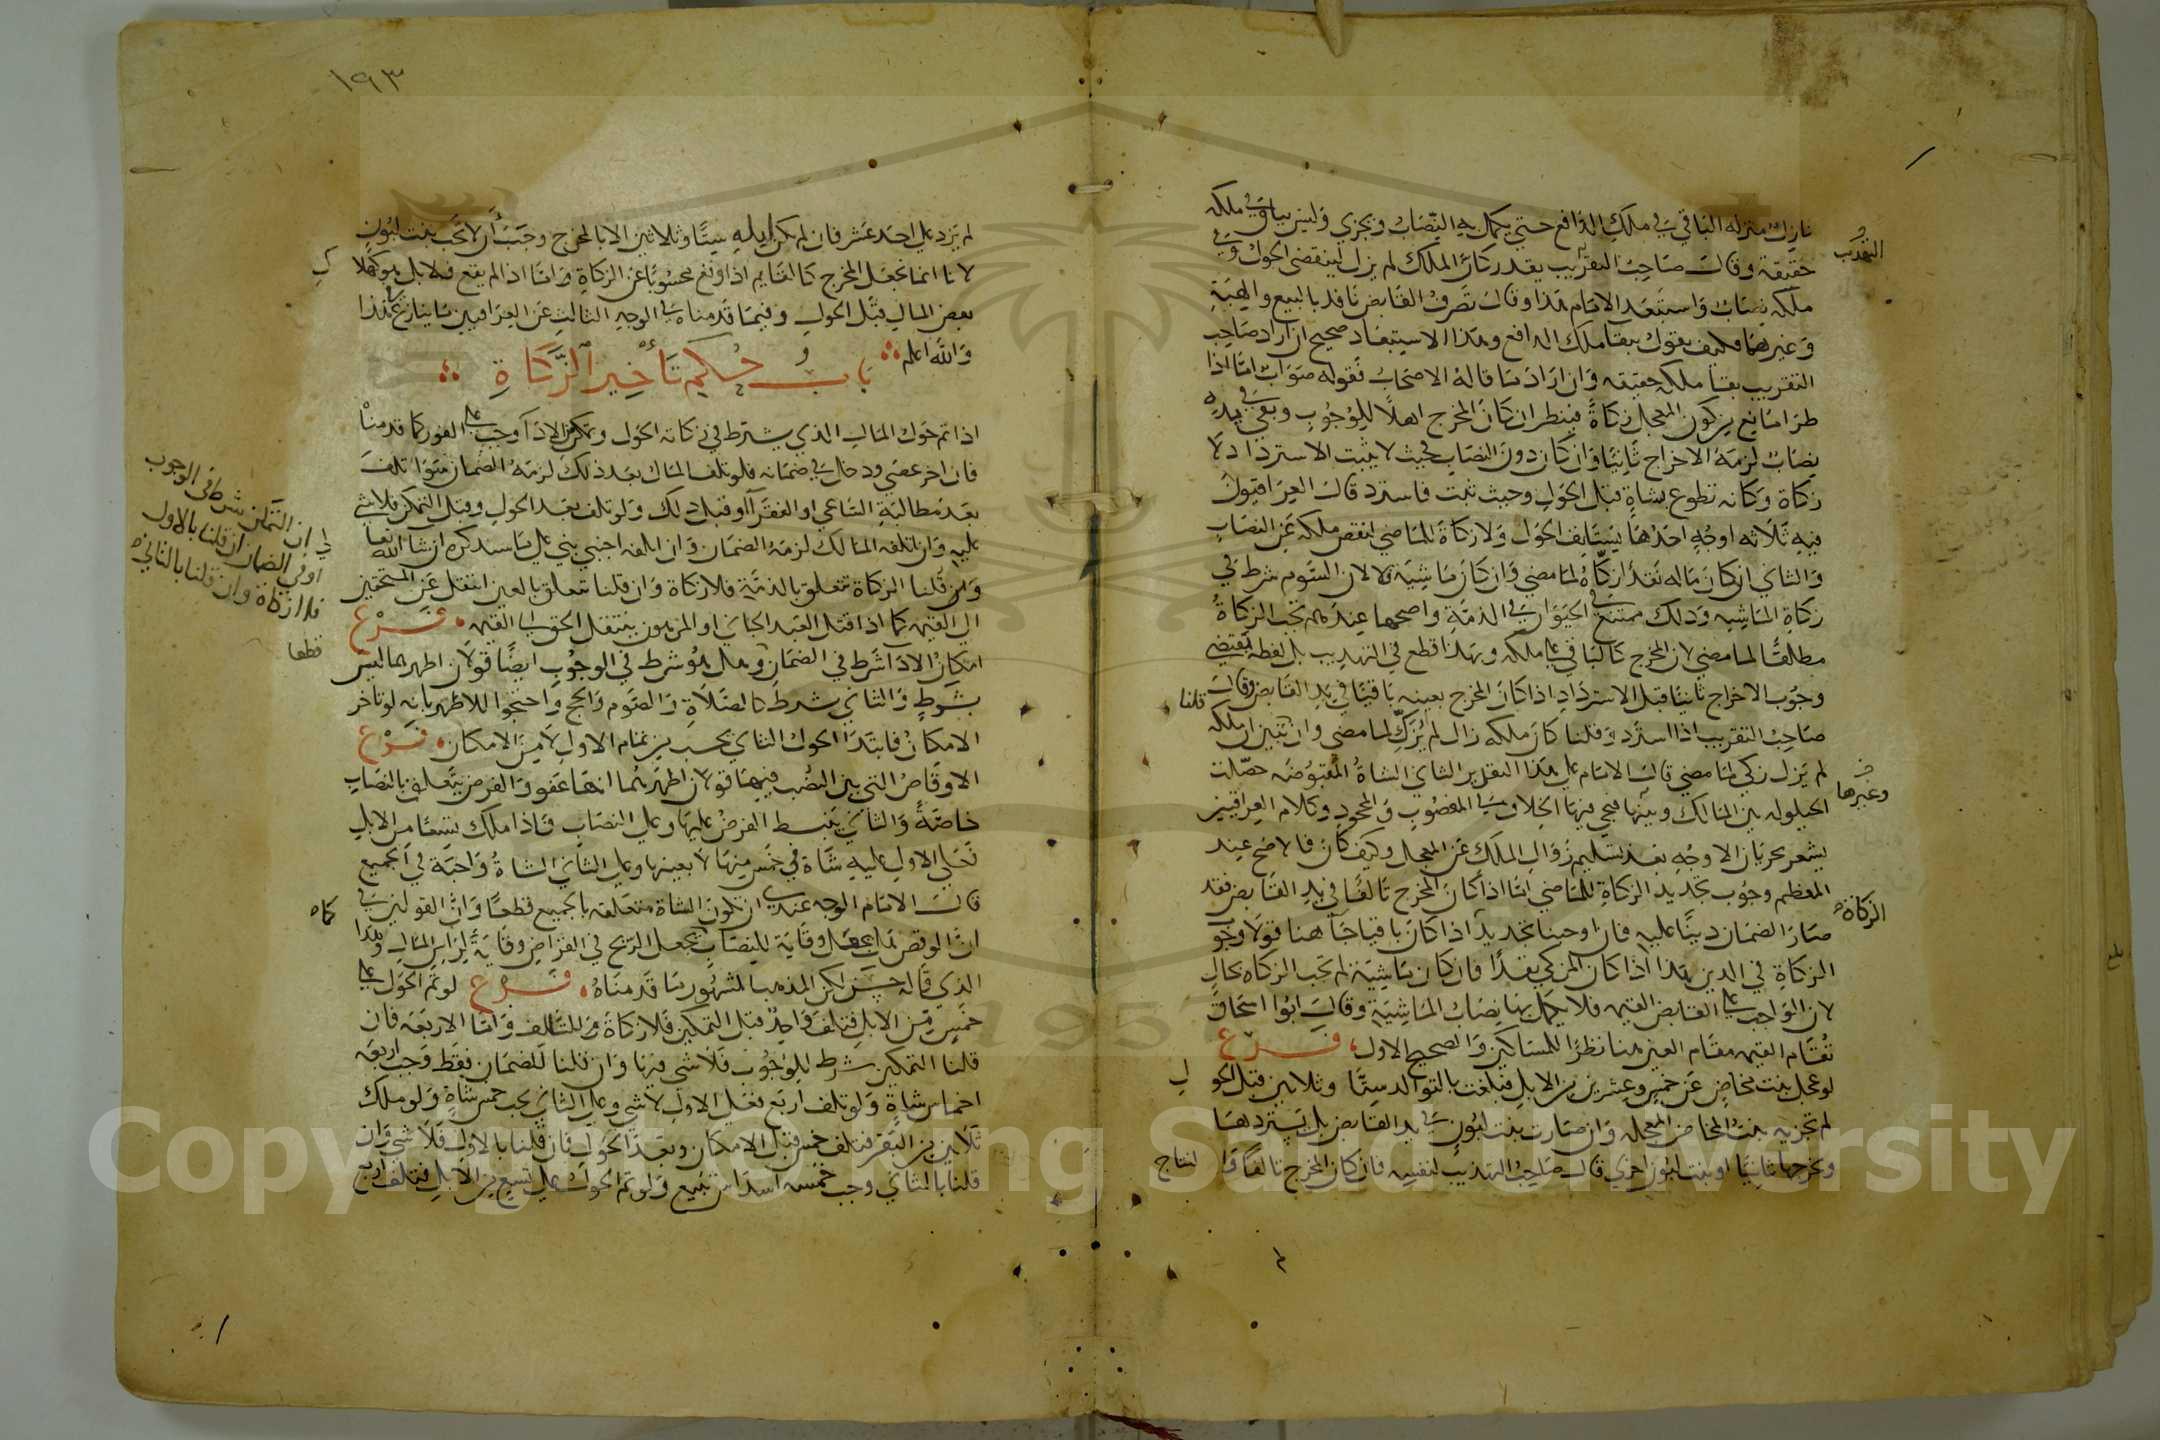 نازل منزلة الباقي في ملك الدافع حتى يكمل به النصاب ويجزي وليس بباق في ملكه
حقيقة وقال صاحب التقريب يقدر كان الملك لم يزل لينقضي الحول وفي
ملكه نصاب واستبعد الامام هذا وقال تصرف القابض نافذ بالبيع والهبة
وغيرهما فكيف يقول ببقا ملك الدافع وهذا الاستبعاد صحيح ان اراد صاحب
التقريب بقا ملكه حقيقه وان اراد ما قاله الاصحاب فقوله صواب اما اذا
طرا مانع من كون المعجل زكاة فينظر ان كان المخرج اهلا للوجوب وبقي في يده
نصاب لزمه الاخراج ثانيا وان كان دون النصاب فحيث لا يثبت الاسترداد لا
زكاة وكانه تطوع بشاة قبل الحول وحيث ثبت فاسترد قال العراقيون
فيه ثلاثه اوجه احدها يستانف الحول ولا زكاة للماضي لنقص ملكه عن النصاب
والثاني ان كان ماله نقدا زكاه لما مضي وان كان ماشية فلا لان السوم شرط في
زكاة الماشيه وذلك ممتنع في الحيوان في الذمة واصحها عندهم تجب الزكاة
مطلقا لما مضي لان المخرج كالباقي على ملكه وبهذا قطع في التهذيب بل لفظه يقتضي
وجوب الاخراج ثانيا قبل الاسترداد اذا كان المخرج بعينه باقيا في يد القابض وقال
صاحب التقريب اذا استرد وقلنا كان ملكه زال لم يزك لما مضي وان تبين ان ملكه
لم يزل زكي لما مضي قال الامام على هذا التقدير الثاني الشاة المقبوضه حصلت
الحيلوله بين المالك وبينها فيجي فيها الخلاف في المغصوب والمجحود وكلام العراقيين
يشعر بجريان الاوجه بعد تسليم زوال الملك عن المعجل وكيف كان فالاصح عند
المعظم وجوب تجديد الزكاة للماضي اما اذا كان المخرج تالفا في يد القابض فقد
صار الضمان دينا عليه فان اوجبنا تجديدا اذا كان باقيا جا هنا قولا وجوب
الزكاة في الدين هذا اذا كان المزكي نقدا فان كان ماشية لم تجب الزكاه بحال
لان الواجب على القابض القيمه فلا يكمل بها نصاب الماشية وقال ابوا اسحاق
تقام القيمه مقام العين هنا نظرا للمساكين والصحيح الاول فرع
لو عجل بنت مخاض عن خمس وعشرين من الابل فبلغت بالتوالد ستا وثلاثين قبل الحو
لم تجزيه بنت المخاض المعجله وان صارت بنت لبون في يد القابض بل يستردها
ويخرجها ثانيا او بنت لبون اخري قال صاحب التهذيب لنفسه فان كان المخرج تالفا وا لنتاج
التهذيب
قلنا
وغيرها
الزكاة
ل
١٩٣
لم يزد على احد عشر فان لم تكن ابله ستا وثلاثين الا بالمخرج وجب ان لا تجب بنت لبون
لانا انما نجعل المخرج كالقايم اذا وقع محسوبا عن الزكاة واما اذا لم يقع فلا بل هو كهلا
بعض المال قبل الحول وفيما قدمناه في الوجه الثالث عن العراقيين ما ينازع في هذا
والله اعلم
باب حكم تأخير الزكاة
اذا تم حول المال الذي يشترط في زكاته الحول وتمكن الادا وجب على الفور كما قدمنا
فان اخر عصي ودخل في ضمانه فلو تلف المال بعد ذلك لزمه الضمان سوا تلف
بعد مطالبة الساعي او الفقرا او قبل ذلك ولو تلف بعد الحول وقبل التمكن فلا شي
عليه وان اتلفه المالك لزمه الضمان وان اتلفه اجنبي بني على ما سنذكره ان شا الله تعا
ان قلنا الزكاة تتعلق بالذمة فلا زكاة وان قلنا تتعلق بالعين انتقل عن المستحقين
الى القيمه كما اذا قتل العبد الجاني او المرهون ينتقل الحق الى القيمه فرع
امكان الادا شرط في الضمان وهل هو شرط في الوجوب ايضا قولان اظهرهما ليس
بشرط والثاني شرط كالصلاة والصوم والحج واحتجوا للاظهر بانه لو تاخر
الامكان فابتدا الحول الثاني يحسب من تمام الاول لا من الامكان فرع
الاوقاص التي بين النصب فيها قولان اظهرهما انها عفو والفرض يتعلق بالنصاب
خاصة والثاني ينبسط الفرض عليها وعلى النصاب فاذا ملك تسعا من الابل
فعلي الاول عليه شاة في خمس منها لا بعينها وعلى الثاني الشاة واجبة في الجميع
قال الامام الوجه عندي ان تكون الشاة متعلقه بالجميع قطعا وان القولين في
ان الوقص يجعل وقاية للنصاب كما يجعل الربح في القراض وقاية لراس المال وهذا
الذي قاله حسن لكن المذهب المشهور ما قدمناه فرع لو تم الحول على
خمس من الابل فتلف واحد قبل التمكن فلا زكاة للتالف واما الاربعه فان
قلنا التمكن شرط للوجوب فلا شي فيها وان قلنا للضمان فقط وجب اربعه
اخماس شاة ولو تلف اربع فعلى الاول لا شي وعلى الثاني يجب خمس شاة ولو ملك
ثلاثين من البقر فتلف خمس قبل الامكان وبعد الحول فان قلنا بالاول فلا شي وان
قلنا بالثاني وجب خمسه اسداس تبيع ولو تم الحول على تسع من الابل فتلف اربع
ان التمكن شرط في الوجوب
او في الضمان ان قلنا بالاول
فلا زكاة وان قلنا بالثاني
قطعا
كما
Copyright © King Saud University
1957